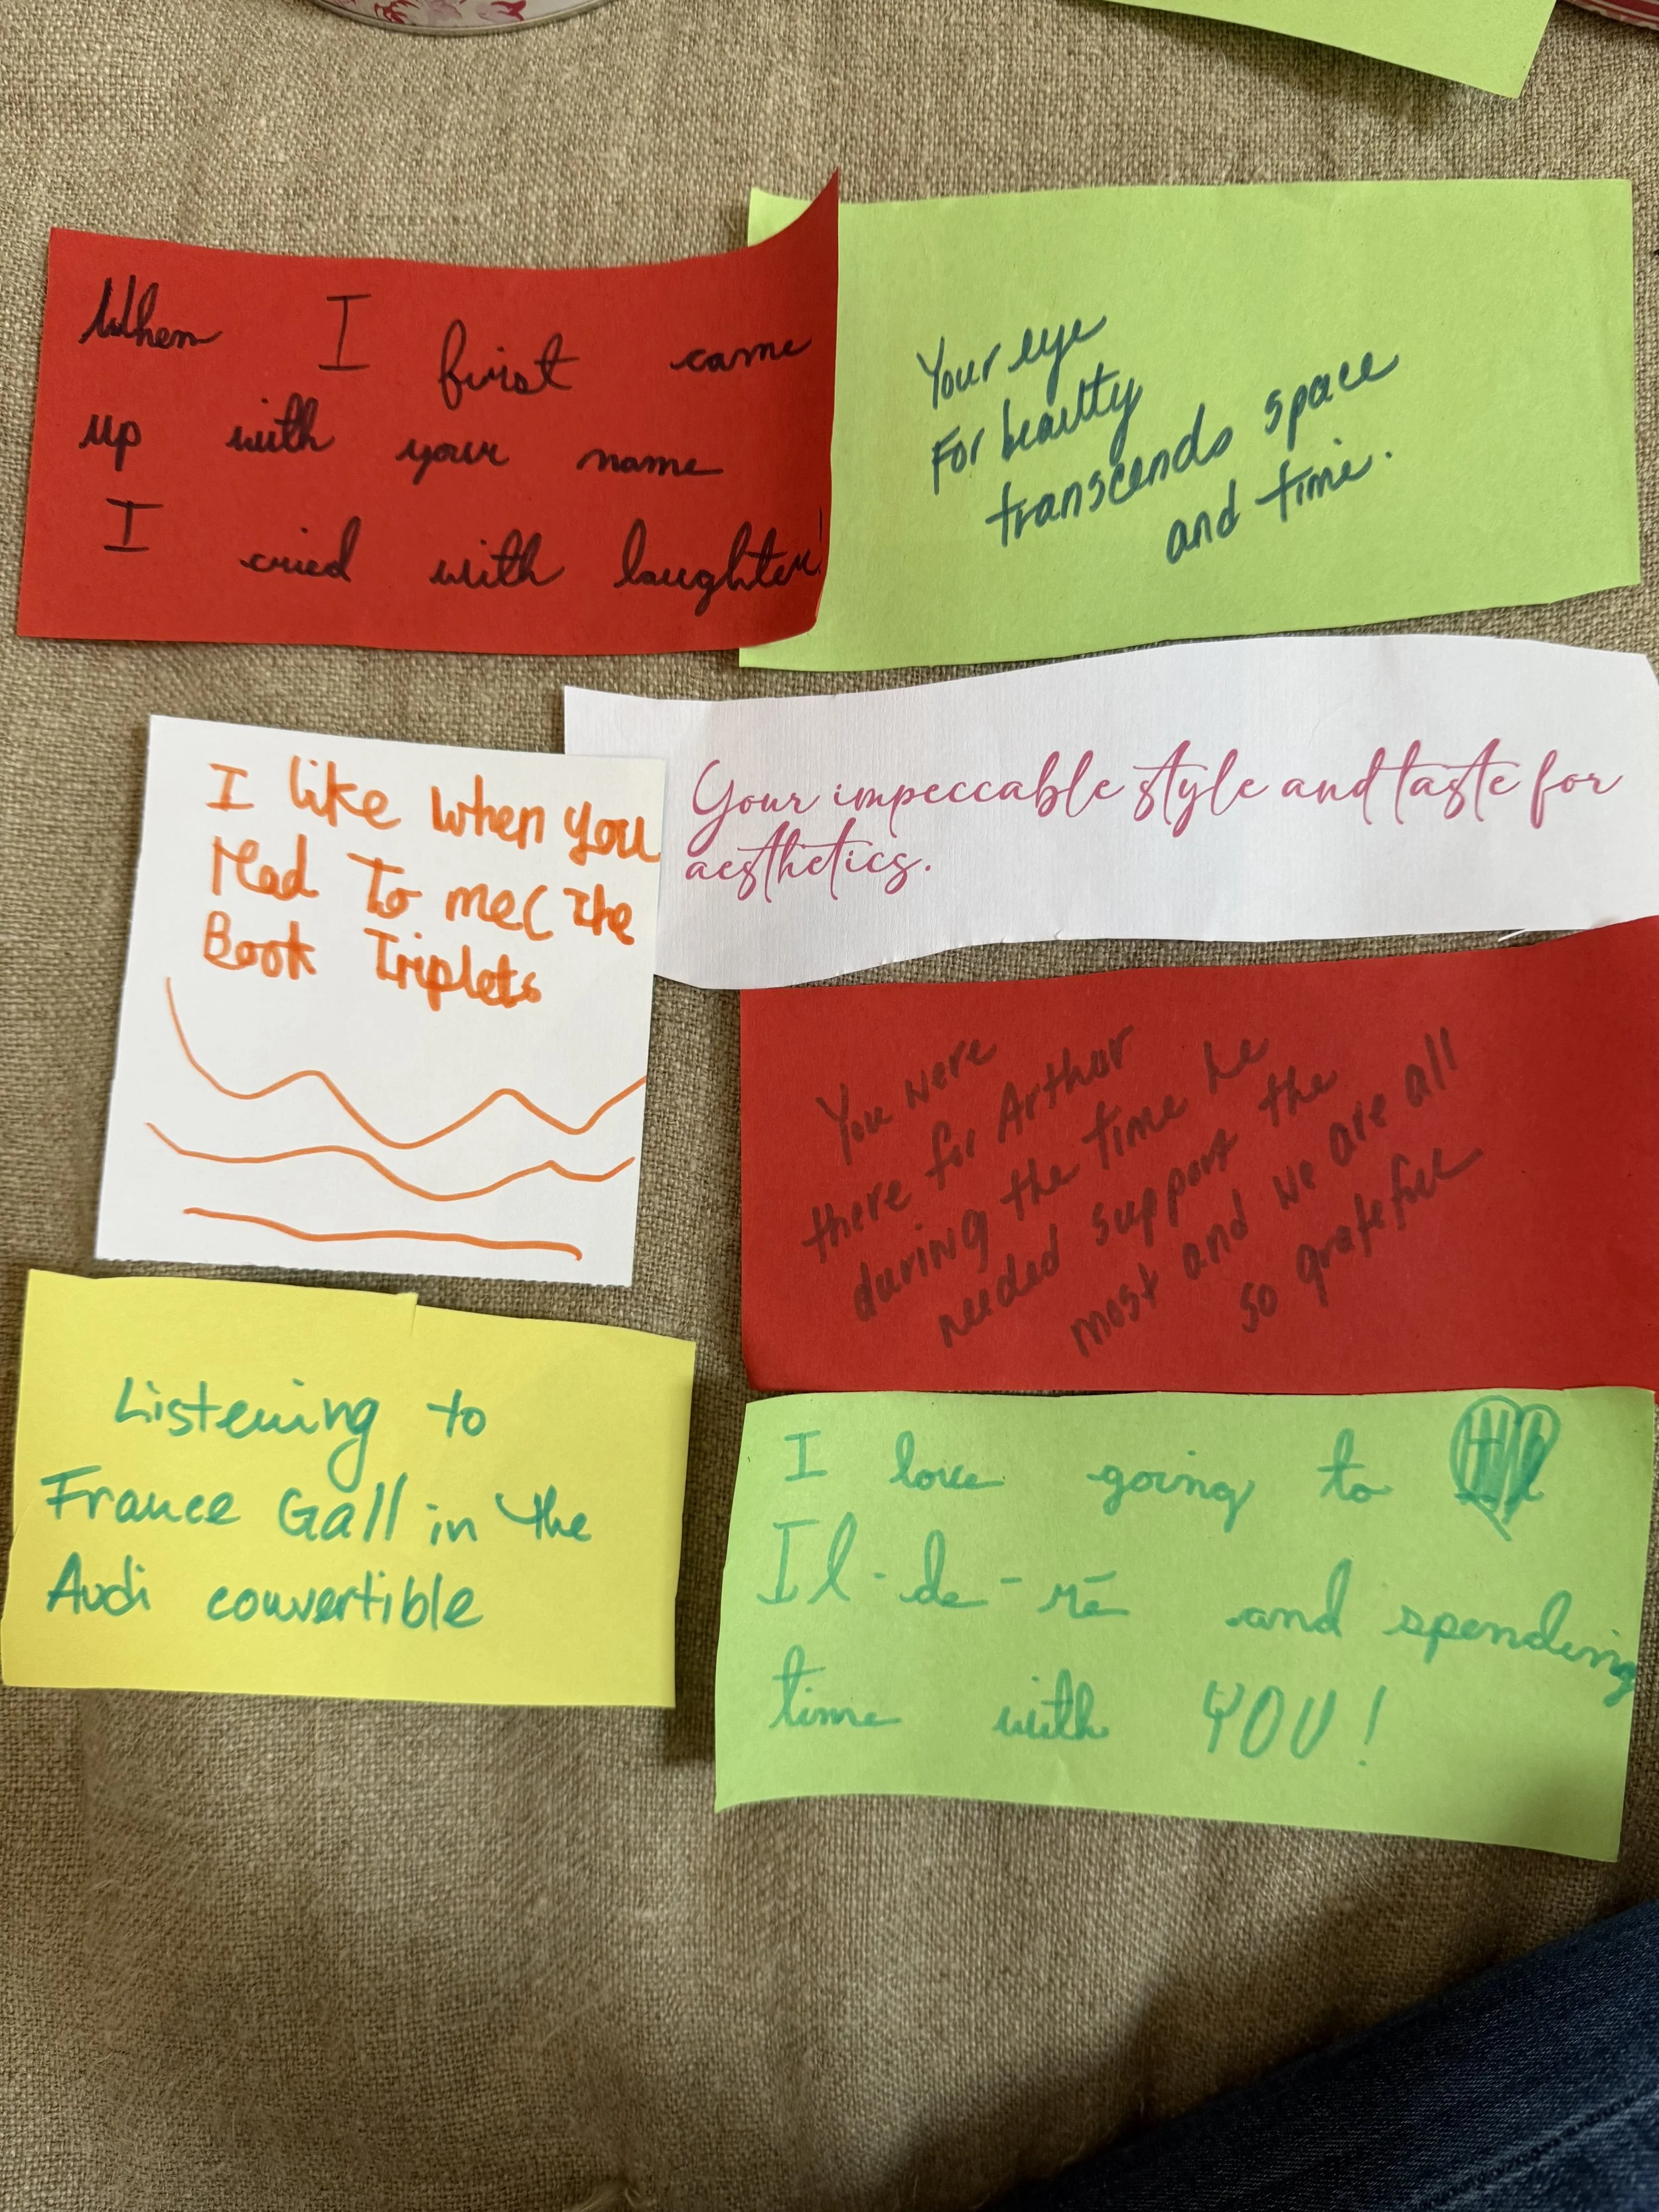 When I first came
up with your name
I cried with laughter!
Your eye
For beauty
transcends space
and time.
I like when you
read to me( The
Book Triplets
Your impeccable style and taste for
aesthetics.
You were
there for Arthur
during the time he
needed support the
most and we are all
so grateful
Listening to
France Gall in the
Audi convertible
I love going to
Il-de-ré and spending
time with YOU!